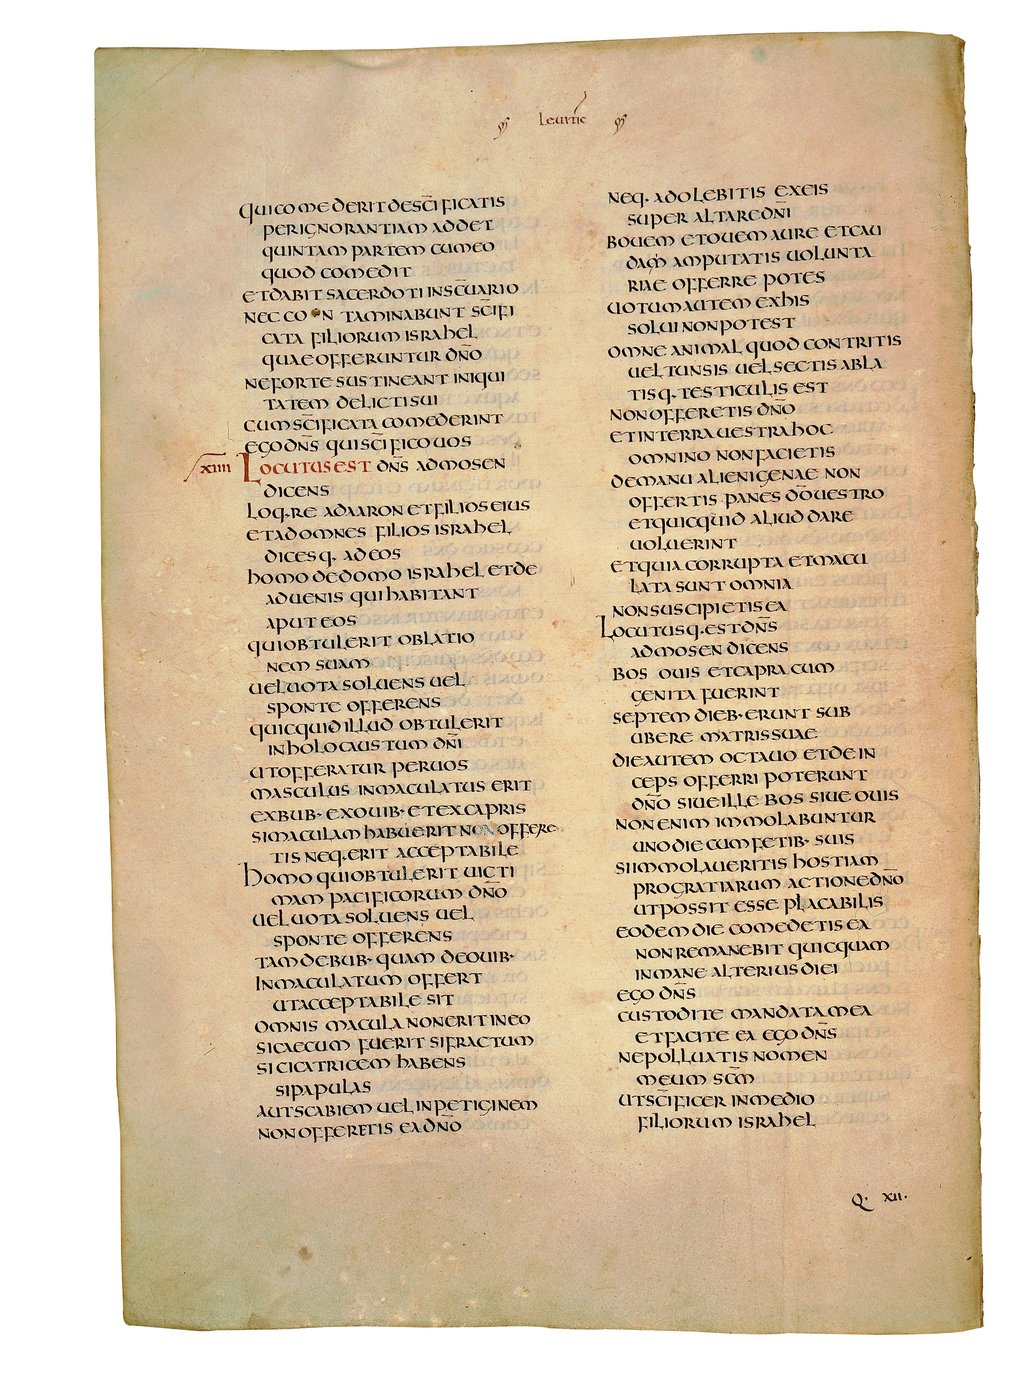 Leuitic
qui comederit de scīficatis
per ignorantiam addet
quintam partem cum eo
quod comedit
et dabit sacerdoti in sc̄uario
nec con taminabunt scīfi
cata filiorum israhel
quae offeruntur dn̄o
ne forte sustineant iniqui
tatem delicti sui
cum scīficata comederint
ego dn̄s qui scīfico uos
xiiii Locutus est dn̄s ad mosen
dicens
loq·re ad aaron et filios eius
et ad omnes filios israhel
dicesq· ad eos
homo de domo israhel et de
aduenis qui habitant
aput eos
qui obtulerit oblatio
nem suam
uel uota soluens uel
sponte offerens
quicquid illud obtulerit
in holocaustum dn̄i
ut offeratur per uos
masculus inmaculatus erit
ex bub· ex ouib· et ex capris
si maculam habuerit non offere
tis neq· erit acceptabile
homo qui obtulerit uicti
mam pacificorum dn̄o
uel uota soluens uel
sponte offerens
tam de bub· quam de ouib·
inmaculatum offert
ut acceptabile sit
omnis macula non erit in eo
si caecum fuerit si fractum
si cicatricem habens
si papulas
aut scabiem uel inpetiginem
non offeretis ea dn̄o
neq· adolebitis ex eis
super altare dn̄i
bouem et ouem aure et cau
da amputatis uolunta
riae offerre potes
uotum autem ex his
solui non potest
omne animal quod contritis
uel tunsis uel sectis abla
tisq· testiculis est
non offeretis dn̄o
et in terra uestra hoc
omnino non facietis
de manu alienigenae non
offertis panes dō uestro
et quicquid aliud dare
uoluerint
et quia corrupta et macu
lata sunt omnia
non suscipietis ea
Locutusq· est dn̄s
ad mosen dicens
bos ouis et capra cum
genita fuerint
septem dieb· erunt sub
ubere matris suae
die autem octauo et dein
ceps offerri poterunt
dn̄o siue ille bos siue ouis
non enim immolabuntur
uno die cum fetib· suis
si immolaueritis hostiam
pro gratiarum actione dn̄o
ut possit esse placabilis
eodem die comedetis ea
non remanebit quicquam
in mane alterius diei
ego dn̄s
custodite mandata mea
et facite ea ego dn̄s
ne polluatis nomen
meum sc̄m
ut scīficer in medio
filiorum israhel
Q· xii·